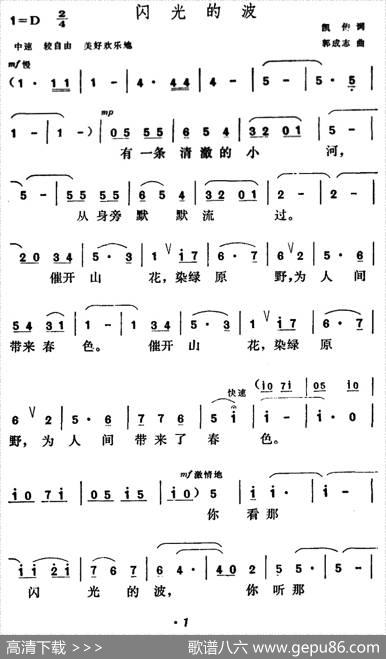 闪光的波
1=D 2/4
凯传 词
中速 较自由 美好欢乐地
郭成志 曲
mf慢
(1·11 | 1 - | 4·44 | 4 - | 5 - | 5·5
mp
1 - | 1 -) | 05 55 | 6 5 4 | 32 01 | 5 -
有一条 清澈的小 河,
5 - | 55 55 | 6 5 4 | 32 01 | 2 - | 2 -
从身旁 默默流 过。
20 34 | 5·3 | 1 V i7 | 6·7 | 6 V 2 | 5·6
催开山 花,染绿原 野,为人间
54 31 | 1 - | 1 34 | 5·3 | 1 V i7 | 6·7
带来春 色。 催开山 花,染绿原
快速
(i0 7i | 05 i0
6 V 2 | 5·6 | 7 7 6 | 5 i | i - | i·0
野,为人间 带来了春 色。
mf激情地
i0 7i | 05 i5 | i0) 5 | i i· | i - |
你看那
i i 2i | 7 6 7 | 6 4· | 4 02 | 5 5· | 5 -
闪光的波, 你听那
·1
高清下载 >>>
歌谱八六 → www.gepu86.com